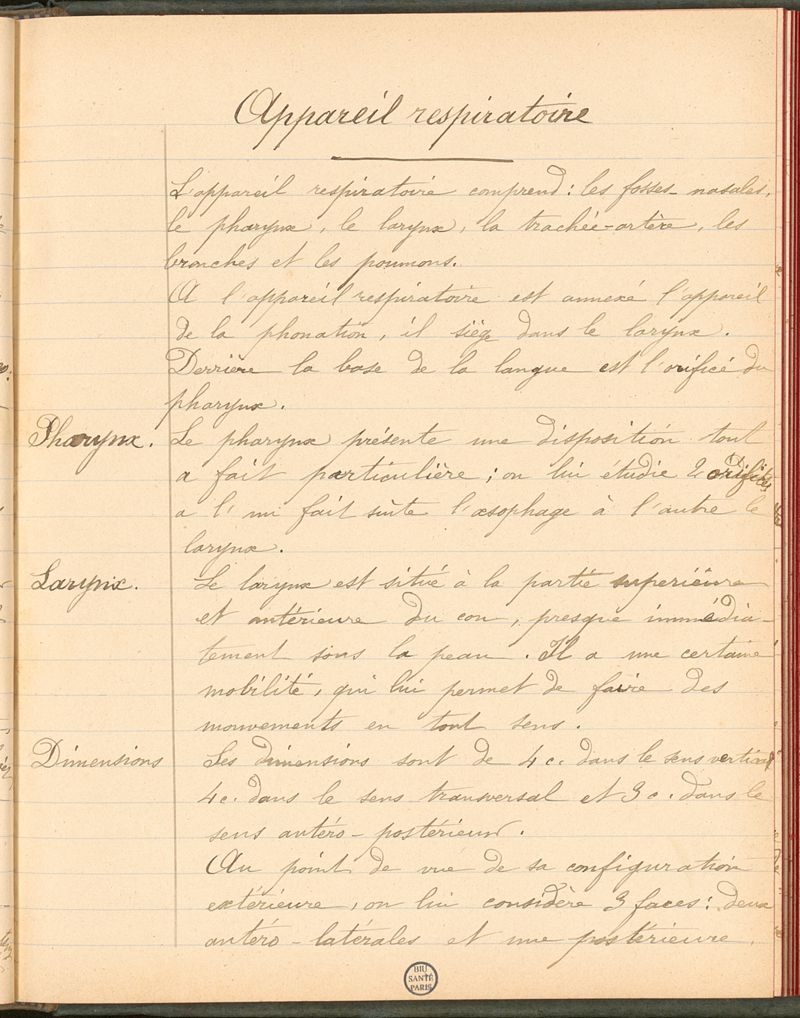 Appareil respiratoire
L'appareil respiratoire comprend : les fosses nasales,
le pharynx, le larynx, la trachée-artère, les
bronches et les poumons.
A l'appareil respiratoire est annexé l'appareil
de la phonation, il siège dans le larynx.
Derrière la base de la langue est l'orifice du
pharynx.
Pharynx. Le pharynx présente une disposition tout
a fait particulière ; on lui étudie 2 orifices
a l'un fait suite l'œsophage à l'autre le
larynx.
Larynx. Le larynx est situé à la partie superieure
et antérieure du cou, presque immédia-
tement sous la peau. Il a une certaine
mobilité, qui lui permet de faire des
mouvements en tout sens.
Dimensions Ses dimensions sont de 4 c. dans le sens vertical
4 c. dans le sens transversal et 3 c. dans le
sens antéro-postérieur.
Au point de vue de sa configuration
extérieure, on lui considère 3 faces : deux
antéro-latérales et une postérieure.
BIU
SANTÉ
PARIS